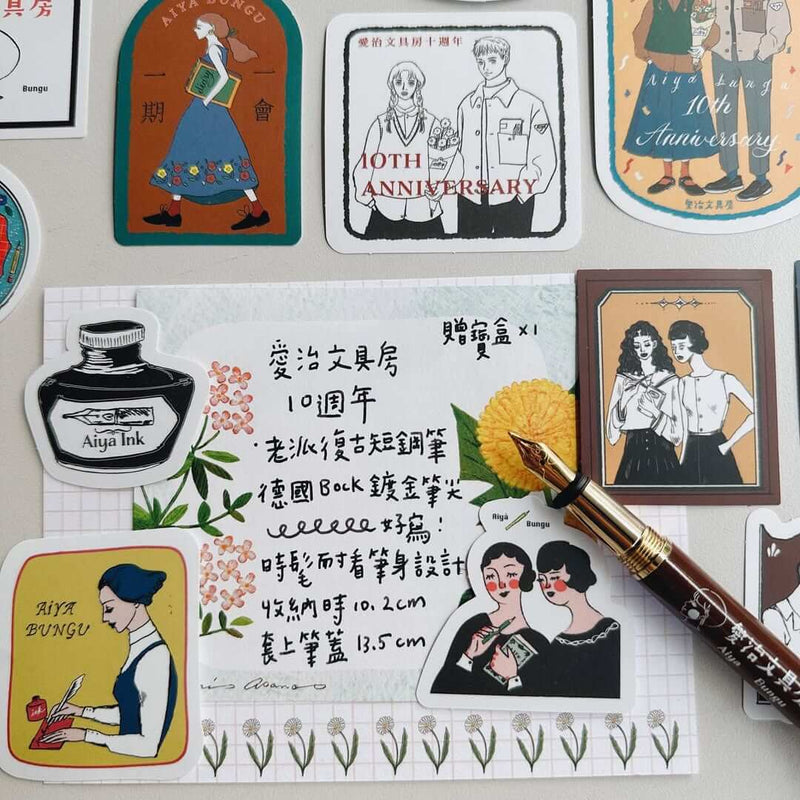 具房
Bungu
AIYA BUNGU
一期
一會
diary
愛治文具房十週年
10TH
ANNIVERSARY
Aiya Bungu
10th
Anniversary
愛治文具房
贈寶盒 x1
愛治文具房
10週年
·老派復古短鋼筆
德國Bock鍍金筆尖
好寫!
時髦耐看筆身設計
收納時10.2cm
套上筆蓋 13.5cm
Aiya Ink
Aiya Bungu
AIYA
BUNGU
ink
愛治文具房
Aiya Bungu